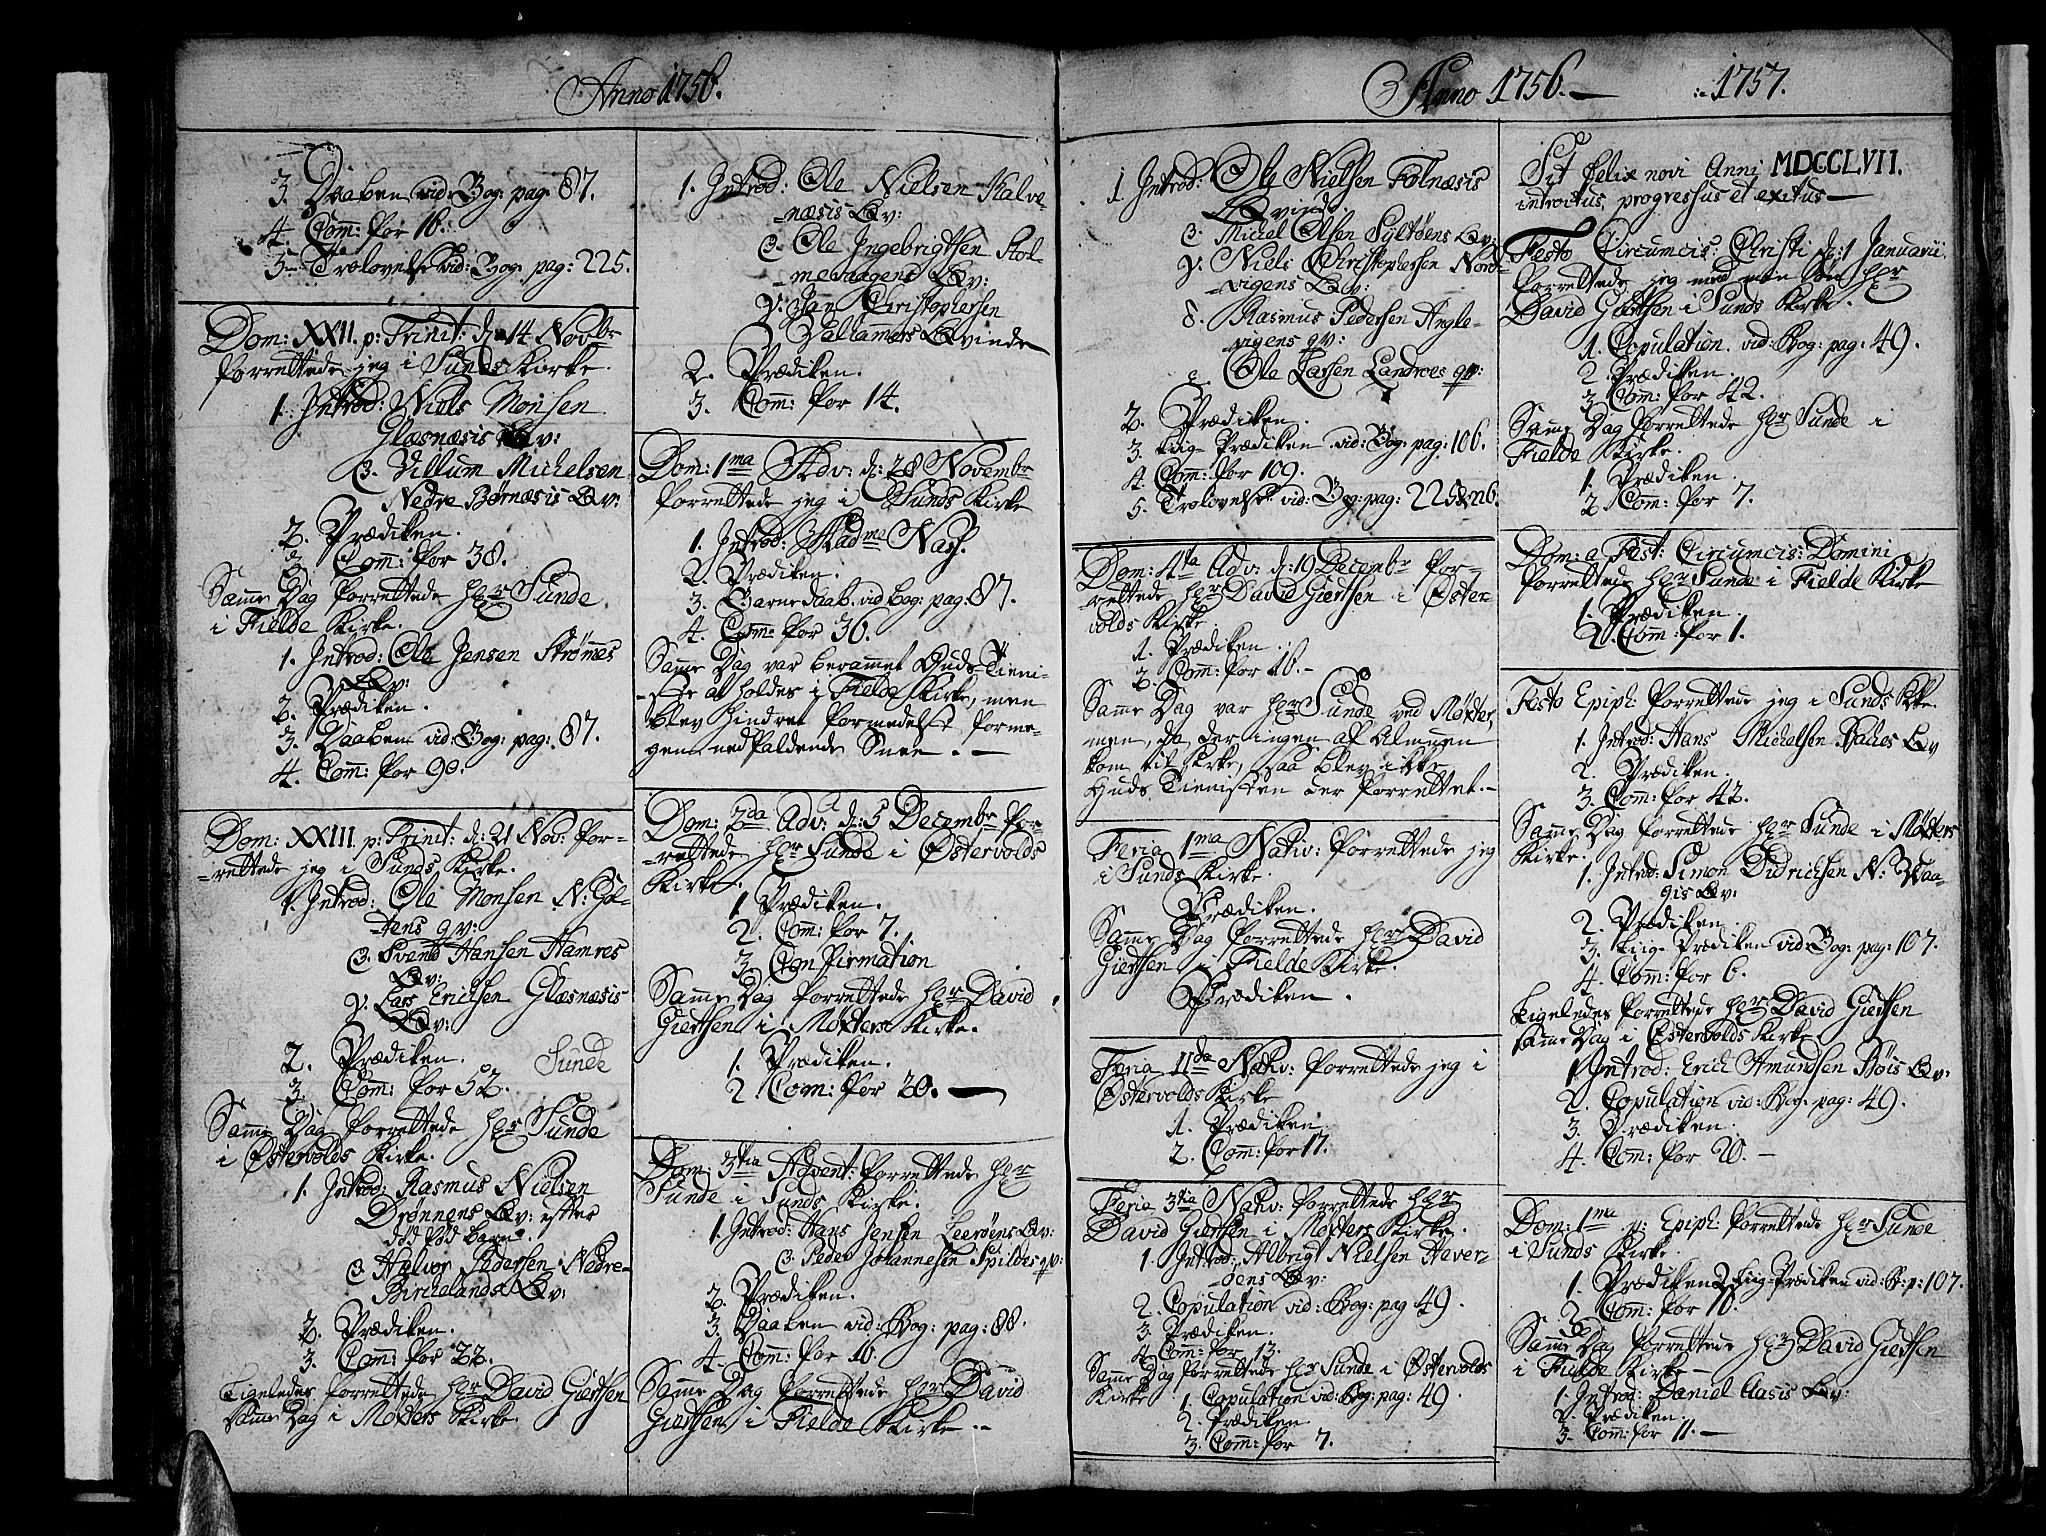 Anno 1756.
3. Daaben vid: Bog: pag: 87.
4. Com̄: for 16.
5. Trolovelse vid: Bog: pag: 225.
Dom: XXII. p: Trinit: d: 14 Novbr
forrettede jeg i Sunds Kirke.
1. Introd: Niels Monsen
Glæsnæsis Qv:
2. Villum Michelsen
Nedre Børnæsis Qv:
2. Prædiken.
3. Com̄: for 38.
Samme Dag forrettede Hr Sunde
i Fielde Kirke.
1. Introd: Ole Jensen Strømes
Qv:
2. Prædiken.
3. Daaben vid: Bog: pag: 87.
4. Com̄: for 90.
Dom: XXIII p: Trinit: d: 21 Nov: for-
-rettede jeg i Sunds Kirke.
1. Introd: Ole Monsen N: Gol-
-tens qv:
2. Svend Hansen Hamres
Qv:
3. Lars Erichsen Glæsnæsis
Qv:
2. Prædiken. Sunde
3. Com̄: for 52.
Samme Dag forrettede Hr Sunde
i Østervolds Kirke.
1. Introd: Rasmus Nielsen
Drønnens Qv: efter
død fød barn.
2. Halvor Pedersen Nedre-
Birchelands Qv:
2. Prædiken.
3. Com̄: for 22.
Ligeledes forrettede Hr David Giertsen
samme Dag i Møxters Kirke.
1. Introd: Ole Nielsen Kalve-
-næsis Qv:
2. Ole Ingebrigtsen Hol-
mevaagens Qv:
3. Jan Christophersen
Qvinde
2. Prædiken.
3. Com̄: for 14.
Dom: 1ma Adv: d: 28 Novembr
forrettede jeg i Sunds Kirke
1. Introd: Madme Nash.
2. Prædiken.
3. Barne daab. vid Bog: pag: 87.
4. Com̄: for 30.
Samme Dag var berammet Guds Tieni-
-ste at holdes i Fielde Kirke, men
blev hindret formedelst forme-
gen nedfaldende Snee. —
Dom: 2da Adv: d: 5 Decembr for-
-rettede Hr Sunde i Østervolds
Kirke.
1 Prædiken.
2. Com̄: for 7.
3. Confirmation
Samme Dag forrettede Hr David
Giertsen i Møxters Kirke.
1. Prædiken.
2 Com: for 20. —
Dom: 3tia Advent: forrettede Hr
Sunde i Sunds Kirke.
1. Introd: Hans Jensen Leerøens Qv:
2. Peder Johannesen Spildes qv:
2. Prædiken.
3. Daaben vid: Bog: pag: 88.
4. Com̄: for 10.
Samme Dag forrettede Hr David
Giertsen i Fielde Kirke. —
Anno 1756. — : 1757.
1 Introd: Ole Nielsen Folnæsis
Qvinde.
2. Michel Olsen Syltøens Qv:
3. Niels Christophersen Nord-
-vigens Qv:
Rasmus Pedersen Angle-
vigens qv:
Ole Larsen Landroes qv:
2. Prædiken.
3. Liig-Prædiken vid: Bog: pag: 106.
4. Com̄: for 109.
5. Trolovelse vid: Bog: pag: 225 & 226.
Dom: 4ta Adv: d: 19 Decembr for-
-rettede Hr David Giertsen i Øster-
volds Kirke
1. Prædiken.
2. Com̄: for 16. —
Samme Dag var Hr Sunde ved Møxter,
men, da der ingen af Almuen
kom til Kirke, saa blev ikke
Guds Tienisten der forrettet. —
Feria 1ma Nativ: forrettede jeg
i Sunds Kirke.
Prædiken.
Samme Dag forrettede Hr David
Giertsen i Fielde Kirke.
Prædiken.
Feria IIda Nativ: forrettede jeg i
Østervolds Kirke
1. Prædiken.
2. Com̄: for 17.
Feria 3tia Nativ: forrettede Hr
David Giertsen i Møxters Kirke.
1. Introd: Albrigt Nielsen Hever-
-øens Qv:
2. Copulation vid: Bog: pag 49.
3. Prædiken.
4. Com̄: for 13.
Samme Dag forrettede Hr Sunde i Østervolds
Kirke 1. Copulation vid: Bog: pag: 49.
2. Prædiken.
3. Com̄: for 7.
Sit felix novi Anni MDCCLVII.
introitus, progressus et exitus —
Festo Circumcis: Christi d: 1 Januarii
forrettede jeg med min Søn Hr
David Giertsen i Sunds Kirke.
1. Copulation. vid: Bog: pag: 49.
2. Prædiken.
3. Com: for 42.
Samme Dag forrettede Hr Sunde i
Fielde Kirke.
1. Prædiken.
2 Com: for 7.
Dom: a Fest: Circumcis: Domini
forrettede Hr Sunde i Fielde Kirke
1. Prædiken.
2. Com: for 1.
Festo Epiph: forrettede jeg i Sunds Kke.
1. Introd: Hans Michelsen Qv
2. Prædiken.
3. Com̄: for 42.
Samme Dag forrettede Hr Sunde i Møxters
Kirke.
1. Introd: Simon Didrichsen N: Vaa-
gis Qv:
2. Prædiken.
3. Liig-Prædiken vid Bog: pag: 107.
4. Com̄: for 6.
Ligeledes forrettede Hr David Giertsen
samme Dag i Østervolds Kirke
1 Introd: Erich Amundsen Bøis Qv:
2. Copulation vid: Bog. pag: 49.
3. Prædiken.
4. Com: for 20. —
Dom: 1ma p: Epiph: forrettede Hr Sunde
i Sunds Kirke.
1. Prædiken 2 Liig-Prædiken vid: B: p: 107.
3. Com: for 10.
Samme Dag forrettede Hr David Giertsen
i Fielde Kirke —
1. Introd: Daniel Aasis Qv:
2. Prædiken.
3. Com̄: for 11. —